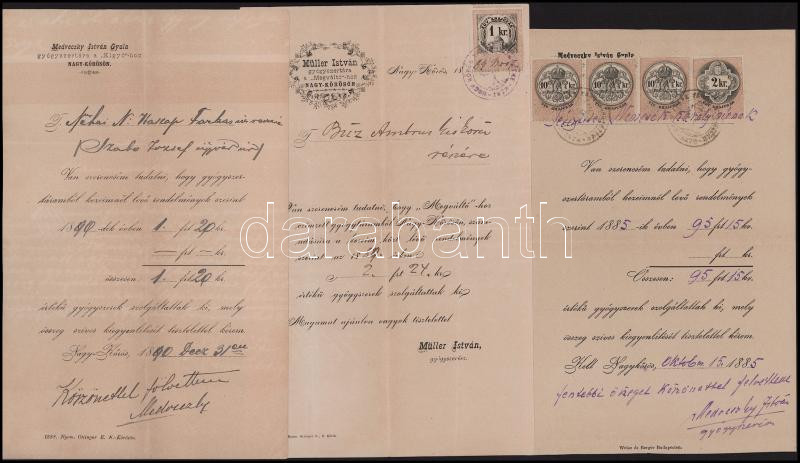 Medveczky István Gyula
gyógyszertára a „Kigyó"-hoz
NAGY-KŐRÖSÖN.
T. Néhai N:
(Szabó József
Van szerencsém tudatni, hogy gyógyszer-
táramból kezeimnél levő rendelmények szerint
1890-dik évben 1 frt 20 kr.
— frt — kr.
összesen: 1 frt 20 kr.
értékü gyógyszerek szolgáltattak ki, mely
összeg szives kiegyenlitését tisztelettel kérem.
Nagy-Kőrös, 1890 Decz 31
Köszönettel fölvettem
Medveczky
1888. Nyom. Ottinger E. N.-Kőrösön.
1 kr.
Müller István
gyógyszertára
a „Megváltó"-hoz
NAGY-KŐRÖSÖN
Nagy-Kőrös 18
T. Búz Ambrus
részére
Van szerencsém tudatni, hogy „Megváltó"-hoz
czimzett gyógytáramból Nagy-Kőrösön, szám-
2. frt 24. kr.
értékü gyógyszerek szolgáltattak ki
Magamat ajánlva vagyok tisztelettel
Müller István,
gyógyszerész.
Medveczky István Gyula
10 kr. 10 kr. 10 kr. 2 kr.
Van szerencsém tudatni, hogy gyógy-
szertáramból kezeimnél levő rendelmények
szerint 1885-ik évben 95 frt 15 kr.
frt kr.
Összesen: 95 frt 15 kr.
értékü gyógyszerek szolgáltattak ki, mely
összeg szives kiegyenlitését tisztelettel kérem.
Kelt Nagykőrös, Oktober 15. 1885
fentebbi összeget köszönettel felvettem
Medveczky István
gyógyszerész
Weisz és Berger Budapesten.
darabanth